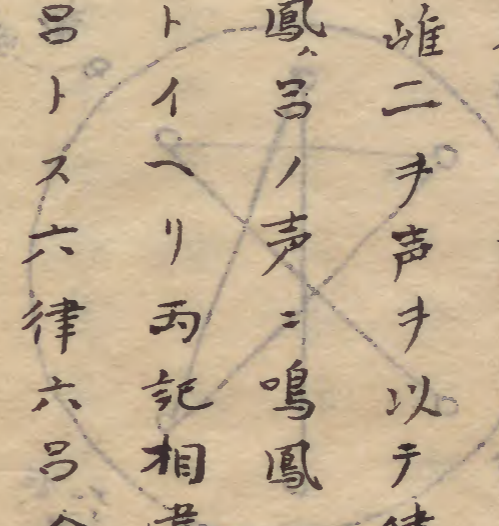 雌二ヲ声ヲ以テ律
鳳ハ呂ノ声ニ鳴鳳
トイヘリ両記相違
呂トス六律六呂